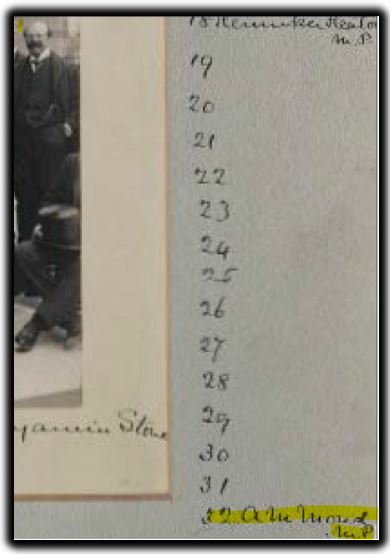 18 Henniker Heaton
M.P.
19
20
21
22
23
24
25
26
27
28
29
30
31
32 A M Mond
M P
yamin Stone